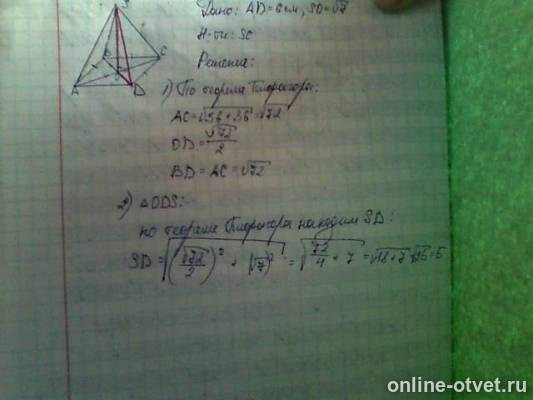 S
A
B
C
D
O
Дано: AD = 6 см, SO = √7
Н-ти: SC
Решение:
1) По теореме Пифагора:
AC = √36 + 36 = √72
OD = √72/2
BD = AC = √72
2) △ODS:
по теореме Пифагора находим SD:
SD = √(√72/2)² + (√7)² = √72/4 + 7 = √18 + 7 √25 = 5
online-otvet.ru